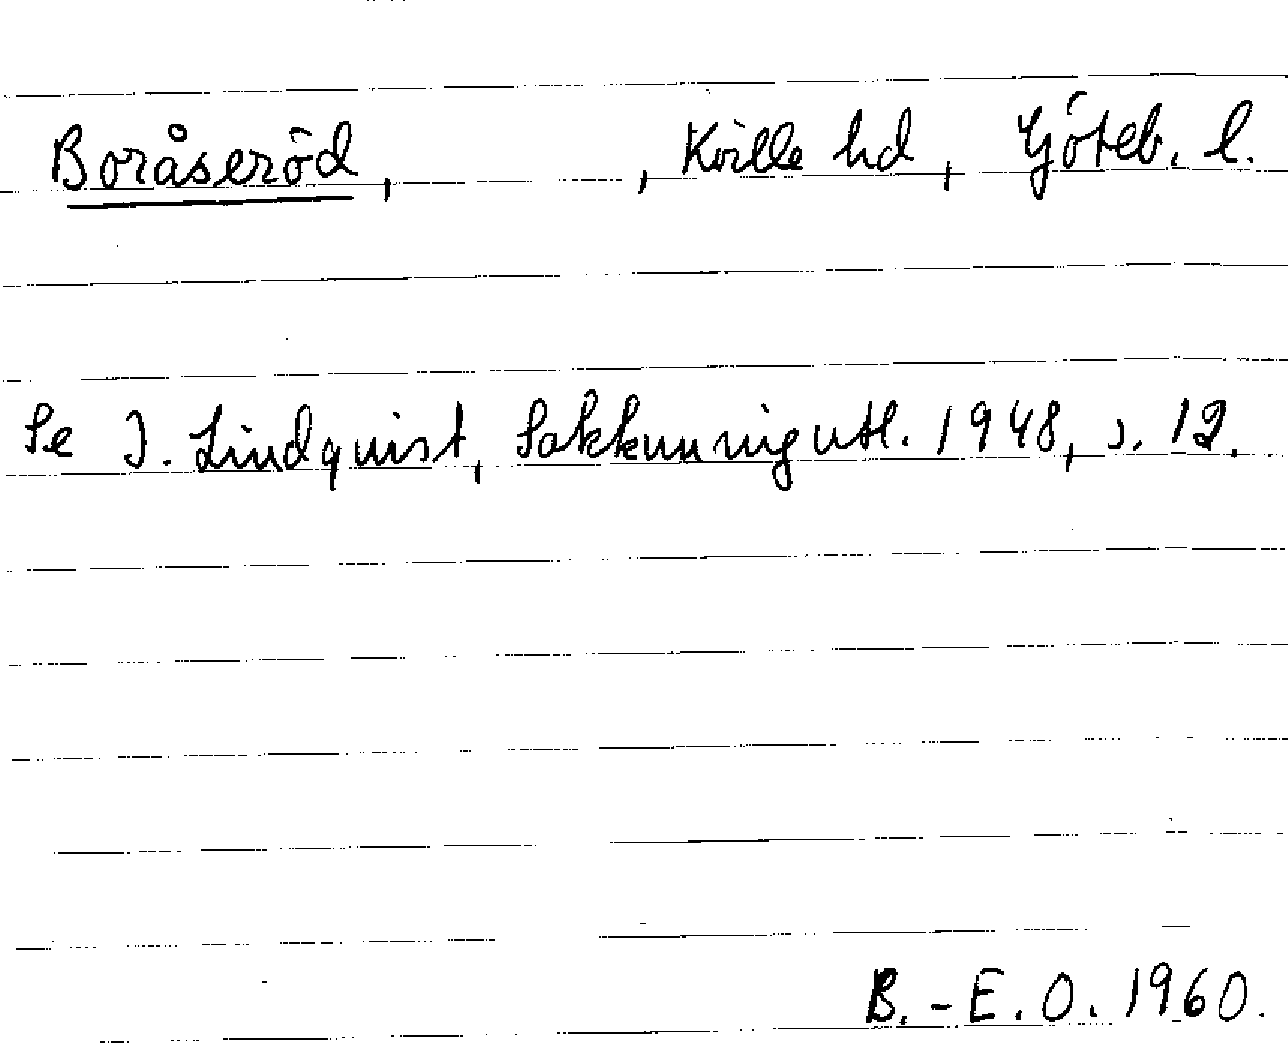 Boråseröd, , Kville hd, Göteb. l.
Se I. Lindquist, Sakkunnigutl. 1948, s. 12.
B.-E.O. 1960.